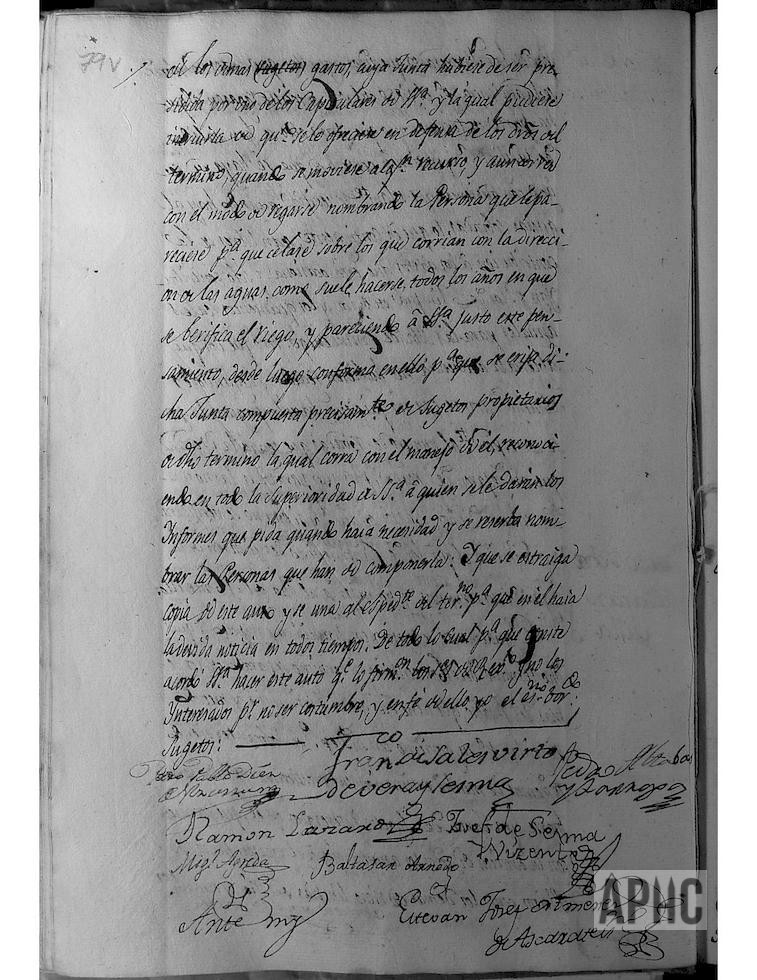 79v
de los demas sugetos gastos, cuya Junta hubiese de ser pre-
sidida por uno de los Capitulares de SSª. y la qual pudiere
instruirla de qto. se le ofreciere en defensa de los dros del
termino, quando se moviere algn. recurso, y aun correr
con el modo de regarse nombrando la Persona que le pa-
reciere pª. que celase sobre los que corrian con la direcci-
on de las aguas, como suele hacerse todos los años en que
se berifica el riego, y pareciendo â SSª. justo este pen-
samiento, desde luego conforma en ello pª. que se erija di-
cha Junta compuesta precisamte. de Sugetos propietarios
de dho termino la qual corra con el manejo de el, reconoci-
endo en todo la superioridad de SSª. â quien se le darán los
Informes que pida quando haia necesidad y se reserba nom-
brar las Personas que han de componerla: Y que se extraiga
copia de este auto y se una al espedte. del termno. pª. que en el haia
la devida noticia en todos tiempos. De todo lo cual pª. que conste
acordó SSª. hacer este auto qe. lo firmn. los Ses. de y no los
Interesados pr. no ser costumbre, y en fé de ello yo el Esno.
Sugetos:
Franco. de Sales Virto
de Vera y Sesma
Pedro
Ramon Lazaro
Josef de Sesma
y Vizente
Migl. Agreda
Baltasar Arnedo
Ante my
Estevan Josef Ximenez
de Ascarate
APNC